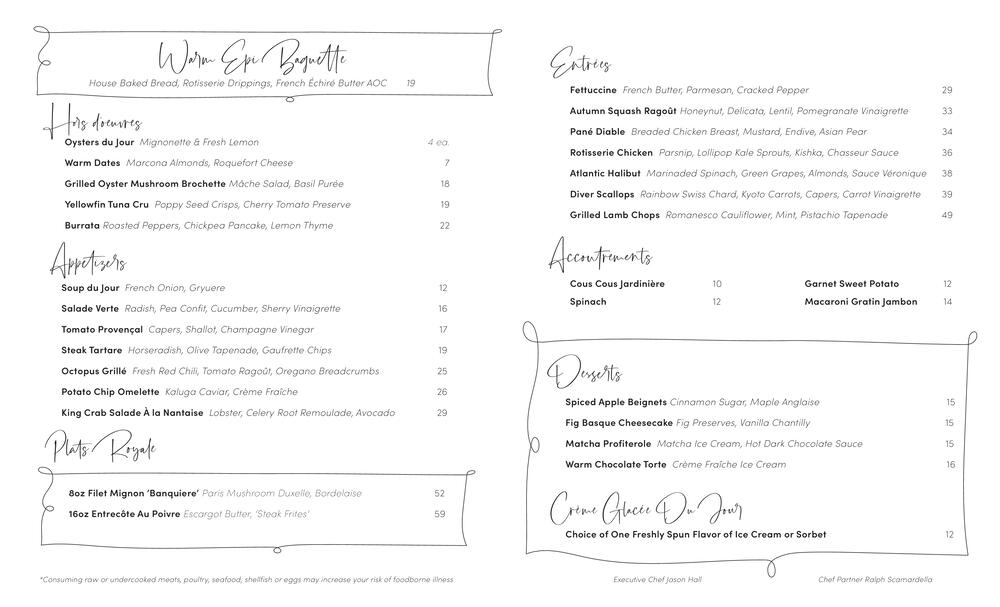 Warm Epi Baguette
House Baked Bread, Rotisserie Drippings, French Échiré Butter AOC 19
Hors d'oeuvres
Oysters du Jour Mignonette & Fresh Lemon 4 ea.
Warm Dates Marcona Almonds, Roquefort Cheese 7
Grilled Oyster Mushroom Brochette Mâche Salad, Basil Purée 18
Yellowfin Tuna Cru Poppy Seed Crisps, Cherry Tomato Preserve 19
Burrata Roasted Peppers, Chickpea Pancake, Lemon Thyme 22
Appetizers
Soup du Jour French Onion, Gruyere 12
Salade Verte Radish, Pea Confit, Cucumber, Sherry Vinaigrette 16
Tomato Provençal Capers, Shallot, Champagne Vinegar 17
Steak Tartare Horseradish, Olive Tapenade, Gaufrette Chips 19
Octopus Grillé Fresh Red Chili, Tomato Ragoût, Oregano Breadcrumbs 25
Potato Chip Omelette Kaluga Caviar, Crème Fraîche 26
King Crab Salade À la Nantaise Lobster, Celery Root Remoulade, Avocado 29
Plats Royale
8oz Filet Mignon 'Banquiere' Paris Mushroom Duxelle, Bordelaise 52
16oz Entrecôte Au Poivre Escargot Butter, 'Steak Frites' 59
*Consuming raw or undercooked meats, poultry, seafood, shellfish or eggs may increase your risk of foodborne illness
Entrées
Fettuccine French Butter, Parmesan, Cracked Pepper 29
Autumn Squash Ragoût Honeynut, Delicata, Lentil, Pomegranate Vinaigrette 33
Pané Diable Breaded Chicken Breast, Mustard, Endive, Asian Pear 34
Rotisserie Chicken Parsnip, Lollipop Kale Sprouts, Kishka, Chasseur Sauce 36
Atlantic Halibut Marinaded Spinach, Green Grapes, Almonds, Sauce Véronique 38
Diver Scallops Rainbow Swiss Chard, Kyoto Carrots, Capers, Carrot Vinaigrette 39
Grilled Lamb Chops Romanesco Cauliflower, Mint, Pistachio Tapenade 49
Accoutrements
Cous Cous Jardinière 10 Garnet Sweet Potato 12
Spinach 12 Macaroni Gratin Jambon 14
Desserts
Spiced Apple Beignets Cinnamon Sugar, Maple Anglaise 15
Fig Basque Cheesecake Fig Preserves, Vanilla Chantilly 15
Matcha Profiterole Matcha Ice Cream, Hot Dark Chocolate Sauce 15
Warm Chocolate Torte Crème Fraîche Ice Cream 16
Crème Glacée Du Jour
Choice of One Freshly Spun Flavor of Ice Cream or Sorbet 12
Executive Chef Jason Hall Chef Partner Ralph Scamardella